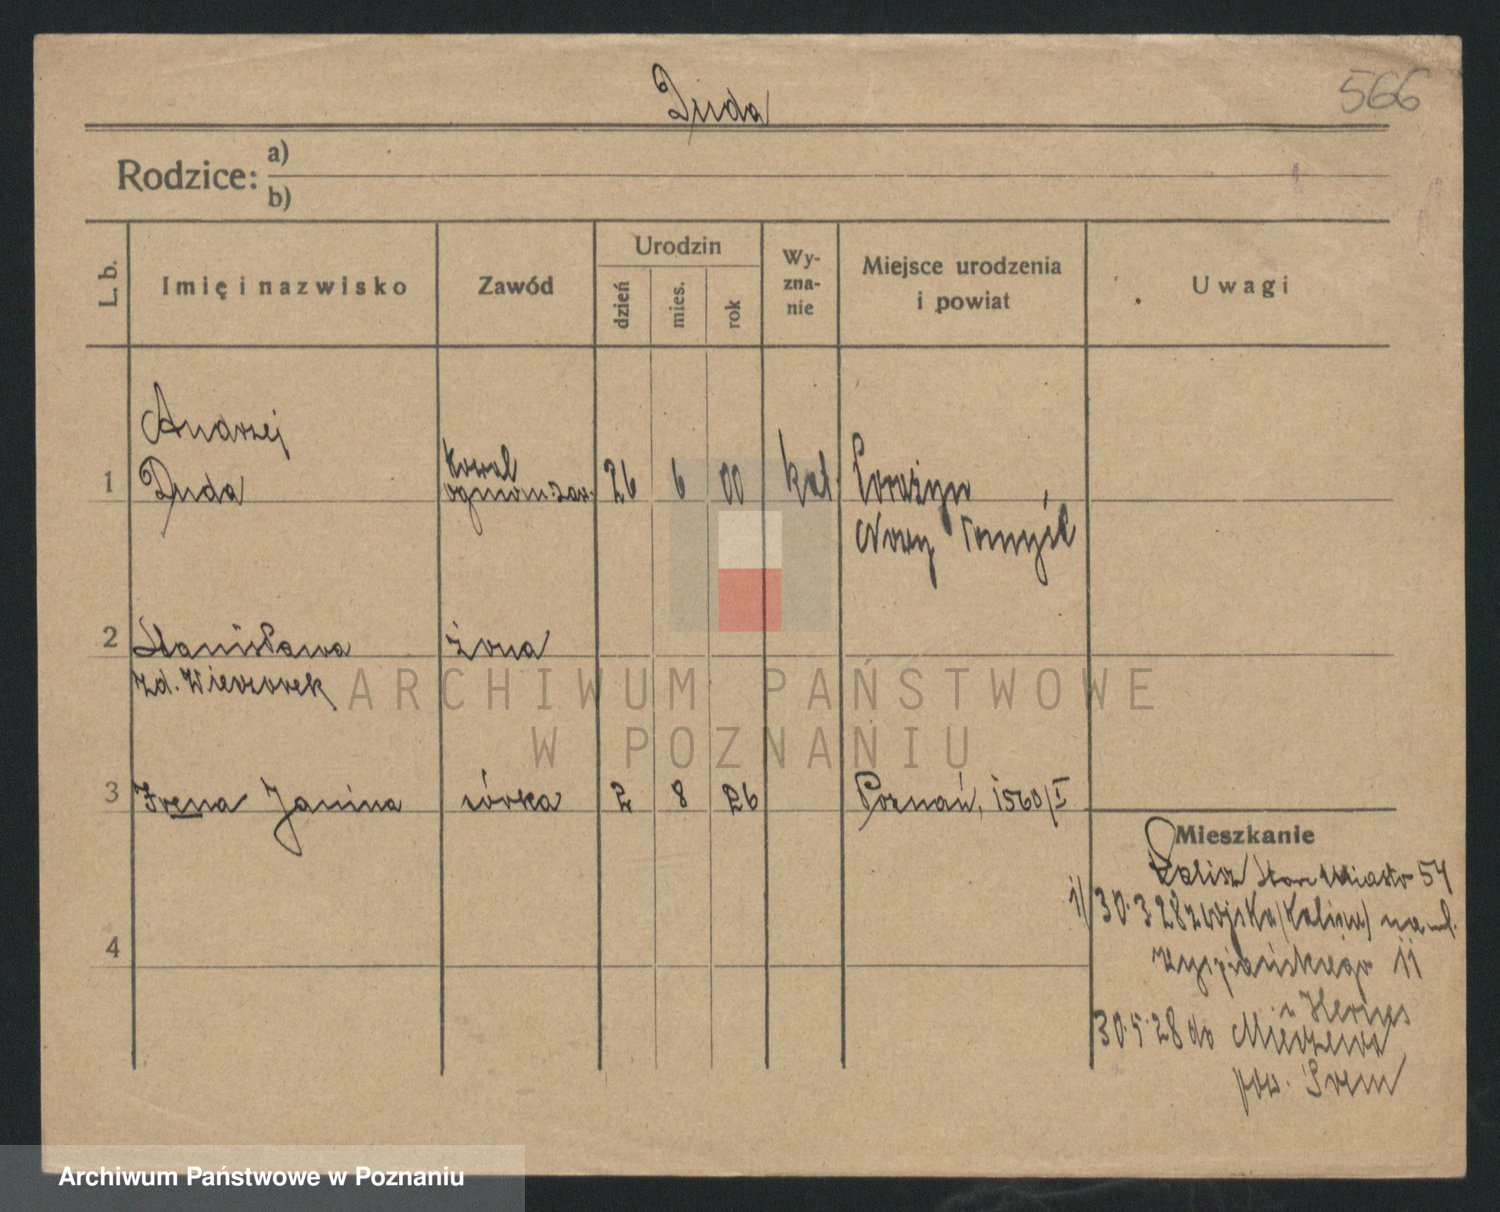 Duda
566
Rodzice: a)
b)
L. b.
Imię i nazwisko
Zawód
Urodzin
dzień
mies.
rok
Wy-
zna-
nie
Miejsce urodzenia
i powiat
Uwagi
1
Andrzej
Duda
kowal
26 6 00 kat.
Porażyn
Nowy Tomyśl
2 Stanisława żona
zd. Wieczorek
3 Irena Janina córka 2 8 26 Poznań, 1560/I
4
Mieszkanie
Kalisz Stare Miasto 54
1/ 30.3.28 z wojska (Kalisz) na ul.
Wyspiańskiego 11
u Hermes
30.5.28 do Mieczewa
pow. Śrem
ARCHIWUM PAŃSTWOWE
W POZNANIU
Archiwum Państwowe w Poznaniu